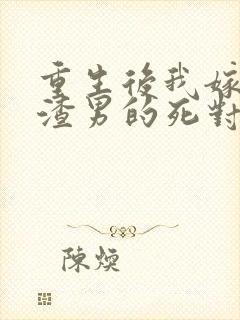 重生後我嫁
渣男的死對
陳煥